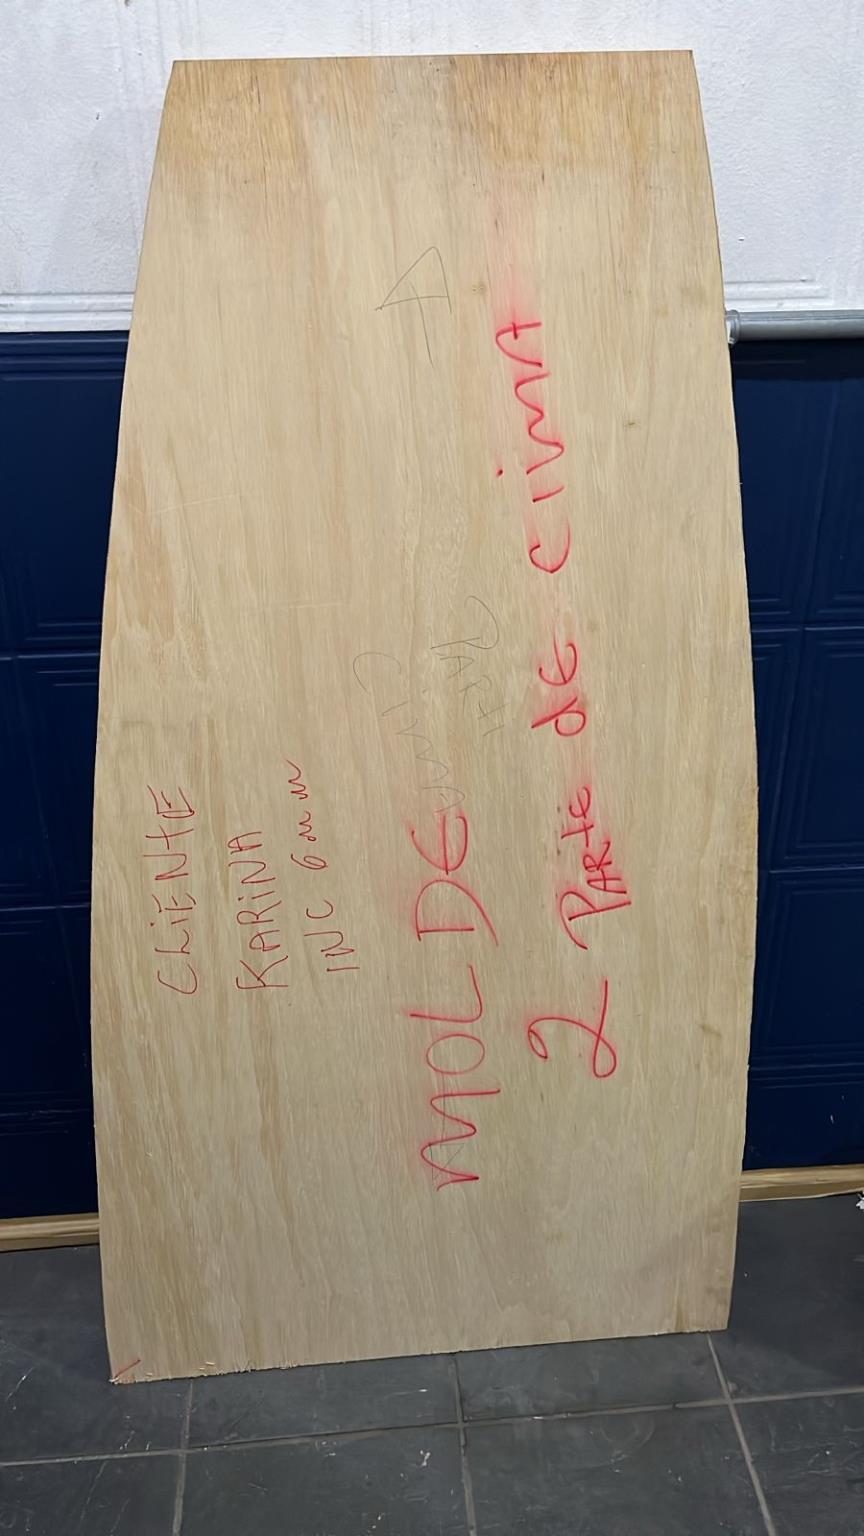 CLiENtE
KARiNA
INC 6mm
MOLDE
2 PARtE dE CiMA
PARtE
CiMA